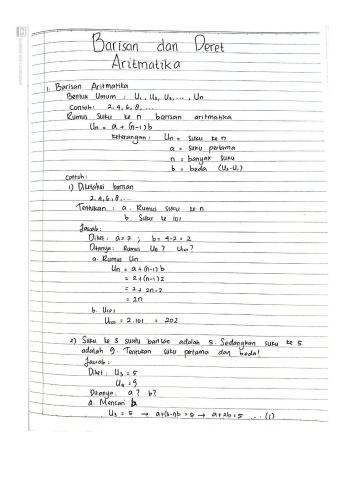 Barisan dan Deret
Aritmatika
1. Barisan Aritmatika
Bentuk Umum : U₁, U₂, U₃, ..., Un
Contoh : 2, 4, 6, 8, ...
Rumus Suku ke n barisan aritmatika
Un = a + (n-1) b
Keterangan : Un = suku ke n
a = suku pertama
n = banyak suku
b = beda (U₂-U₁)
Contoh :
1) Diketahui barisan
2, 4, 6, 8, ...
Tentukan : a. Rumus suku ke n
b. Suku ke 101
Jawab :
Diket : a = 2 ; b = 4-2 = 2
Ditanya : Rumus Un ? U₁₀₁ ?
a. Rumus Un
Un = a + (n-1) b
= 2 + (n-1) 2
= 2 + 2n - 2
= 2n
b. U₁₀₁
U₁₀₁ = 2.101 = 202
2) Suku ke 3 suatu barisan adalah 5. Sedangkan suku ke 5
adalah 9. Tentukan suku pertama dan beda!
Jawab :
Diket : U₃ = 5
= 9
Ditanya : a ? b ?
a. Mencari b
U₃ = 5 → a+(3-1)b = 5 → a + 2b = 5 ... (1)